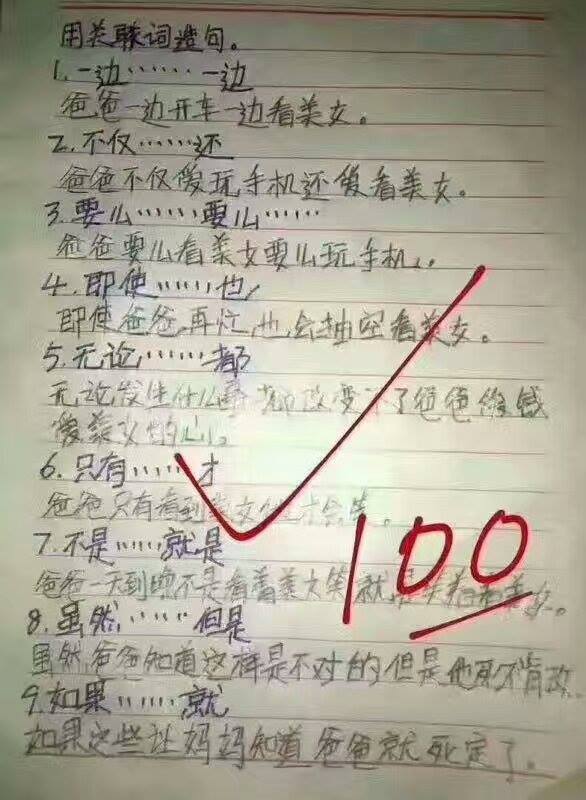 用关联词造句。
1.一边……一边
爸爸一边开车一边看美女。
2.不仅……还
爸爸不仅爱玩手机还爱看美女。
3.要么……要么……
爸爸要么看美女要么玩手机。
4.即使……也
即使爸爸再忙,也会抽空看美女。
5.无论……都
无论发生什么事都改变不了爸爸爱钱
爱美女的心。
6.只有……才
爸爸只有看到美女他才会笑。
7.不是……就是
爸爸一天到晚不是看着美女笑就是笑着看美女。
8.虽然……但是
虽然爸爸知道这样是不对的但是他死不肯改
9.如果……就
如果这些让妈妈知道爸爸就死定了。
100